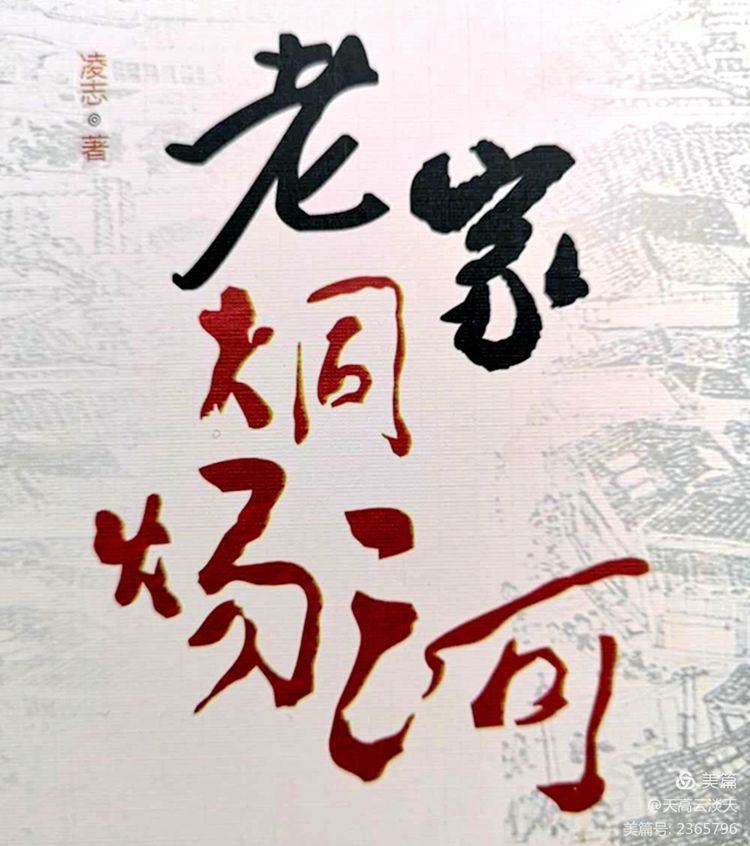 凌志◎著
老家
烔
炀河
美篇
@天高云淡天
美篇号: 2365796